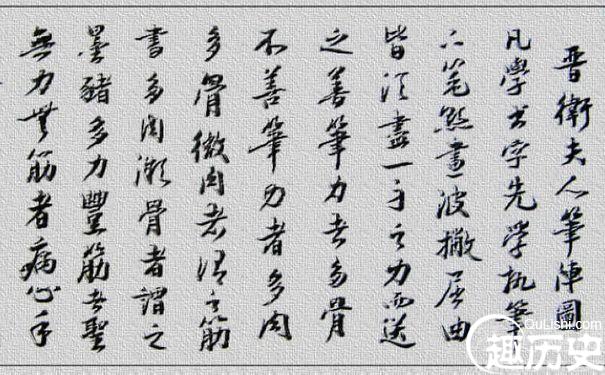 晋衛夫人筆陣圖
凡學书字先學执筆
下笔點畫波撇屈曲
皆须盡一身之力而送
之善筆力者多骨
不善筆力者多肉
多骨微肉者谓之筋
書多肉微骨者謂之
墨豬多力豐筋者聖
無力無筋者病心手
QuLishi.com
趣历史